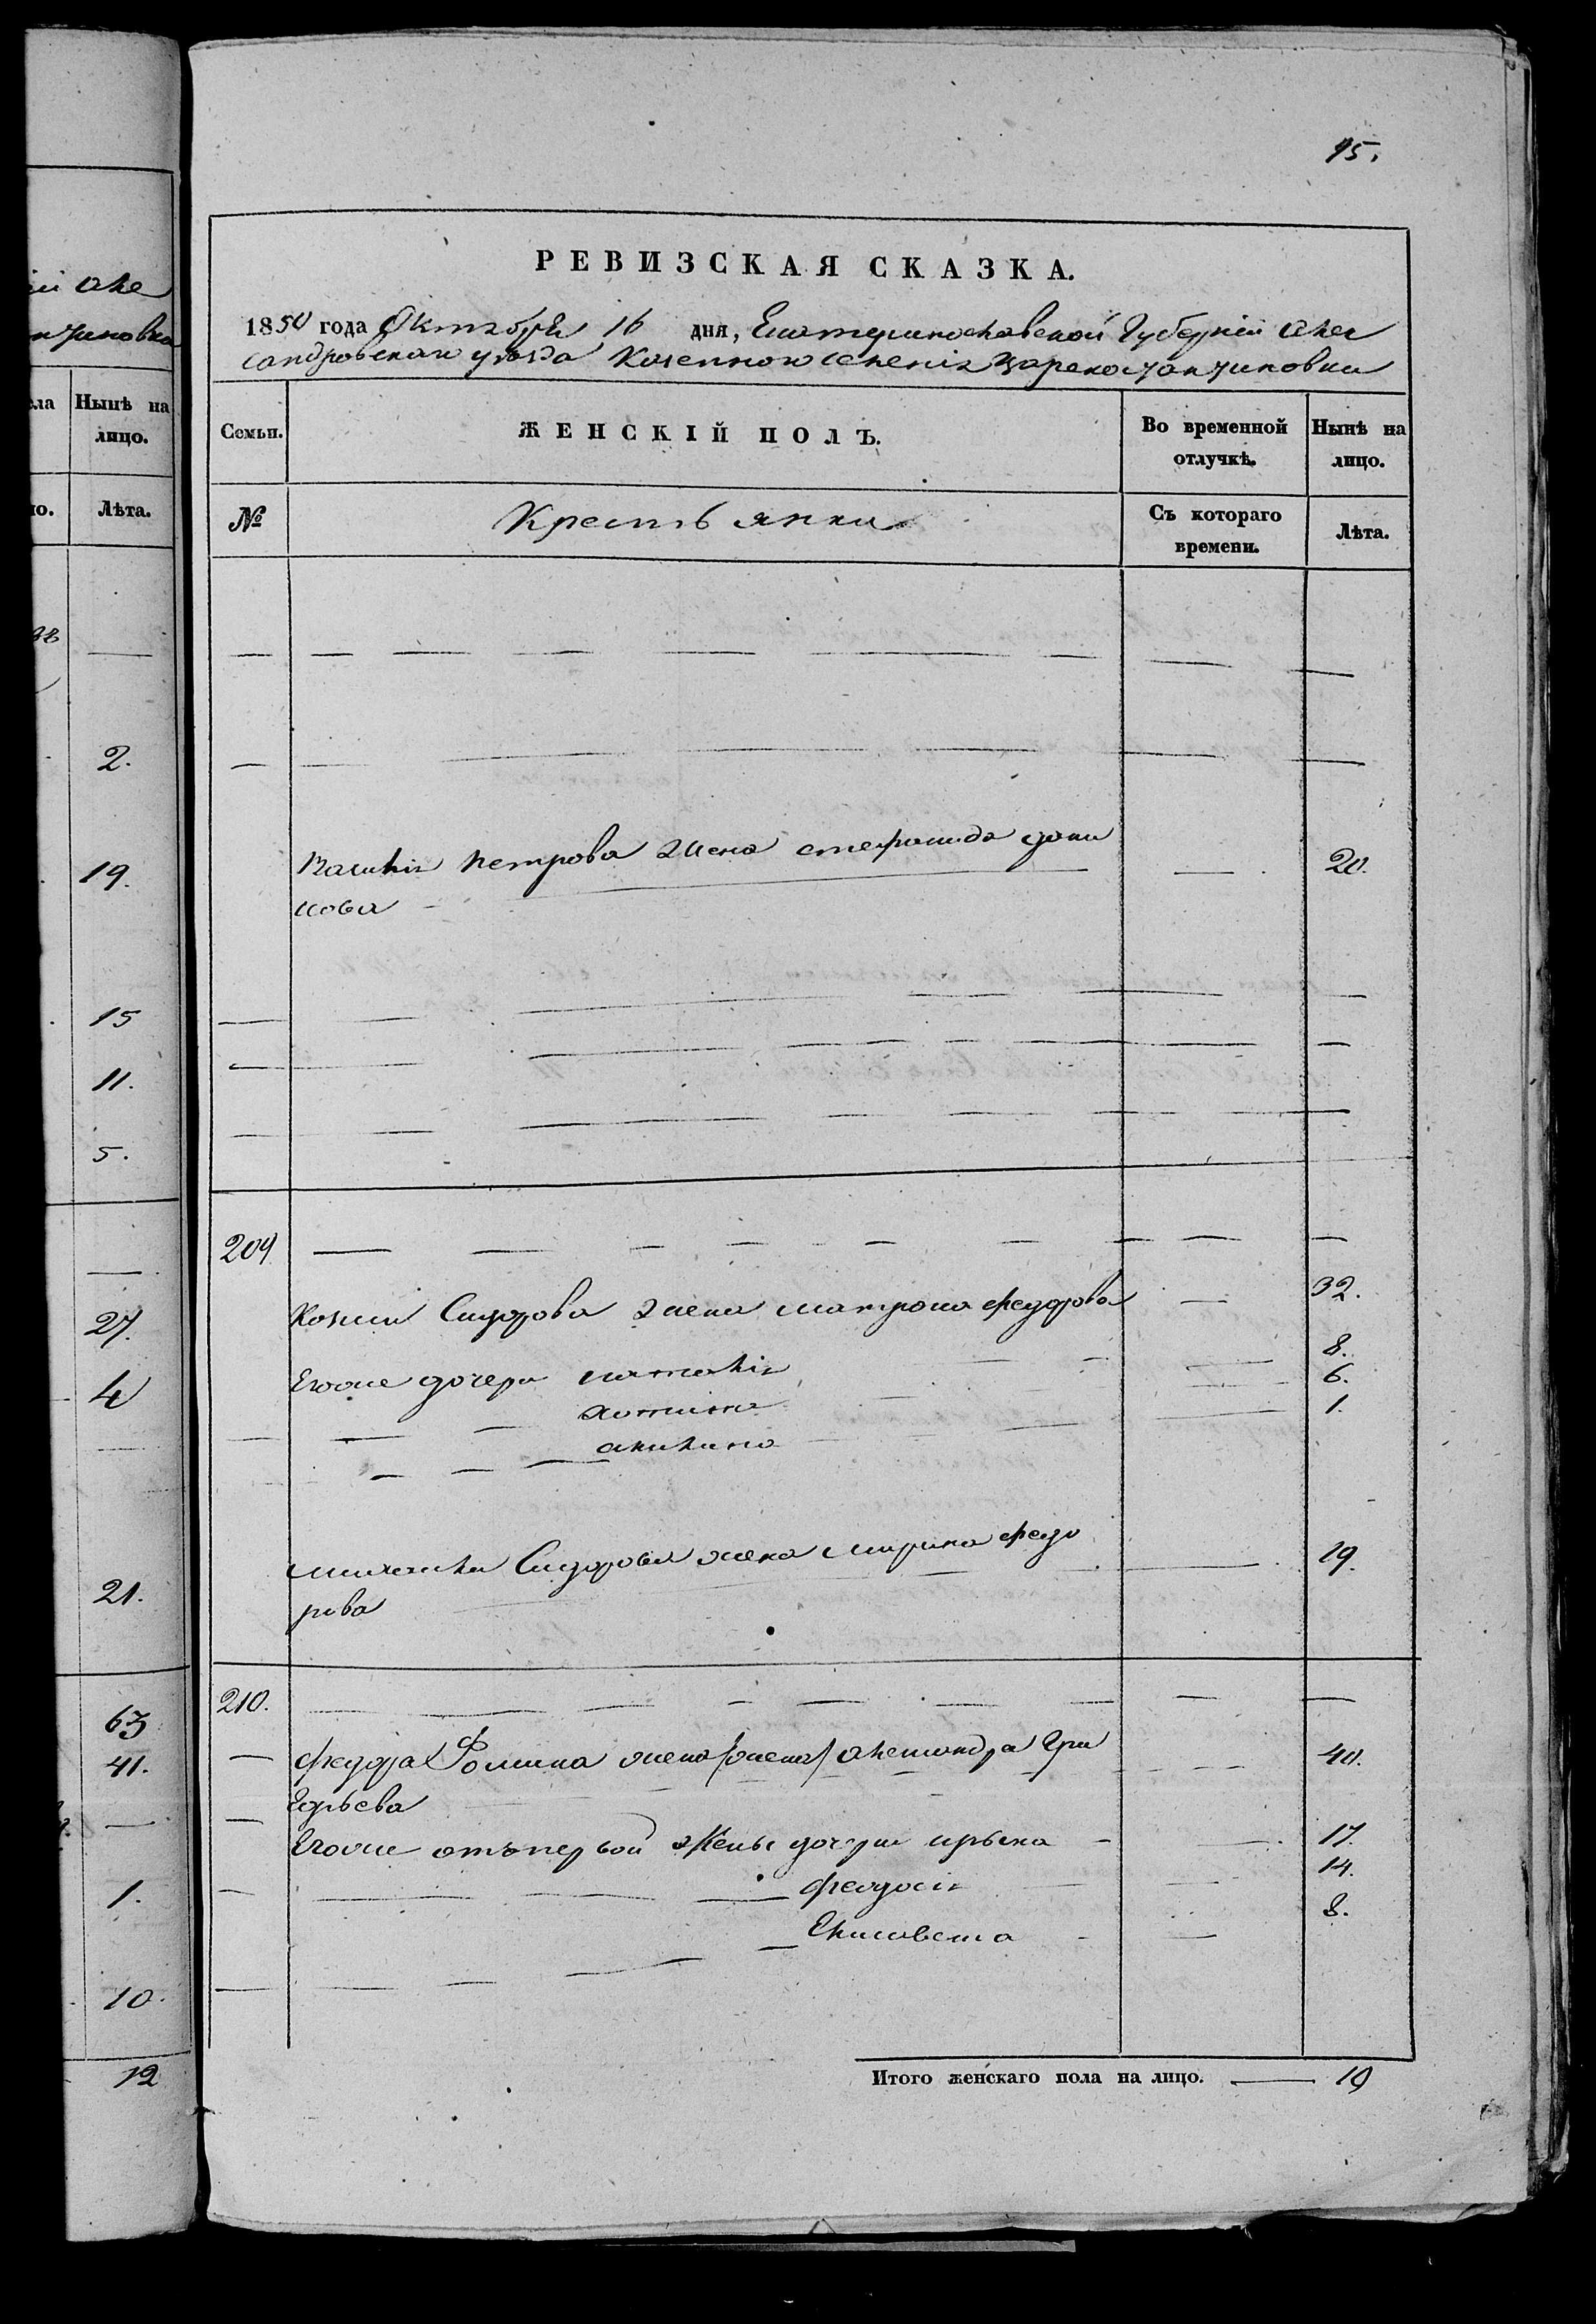 ій Але
нтиновка
ла
Нынѣ на
лицо.
но.
Лѣта.
2.
19.
15
11.
5.
27.
4
21.
63
41.
1.
10.
12
95.
РЕВИЗСКАЯ СКАЗКА.
1850 года Октября 16 дня, Екатеринославской Губерніи Алек
сандровскаго уѣзда Казенного селенія Цареконстантиновки
Семьи.
ЖЕНСКІЙ ПОЛЪ.
Во временной
отлучкѣ.
Нынѣ на
лицо.
№
Крестьянки
Съ котораго
времени.
Лѣта.
Василія Петрова жена стефанида дани
лова
20.
209
Козьми Сидорова жена матрона федорова
32.
Егоже дочери наталія
8.
6.
акилина
1.
михаила Сидорова жена Марина федо
рова
19.
210.
федора Фомина жена /жена/ александра Гри
горьева
40.
Егоже отъ первой Жены дочери ирына
17.
феодосія
14.
Елисавета
8.
Итого женскаго пола на лицо.
10